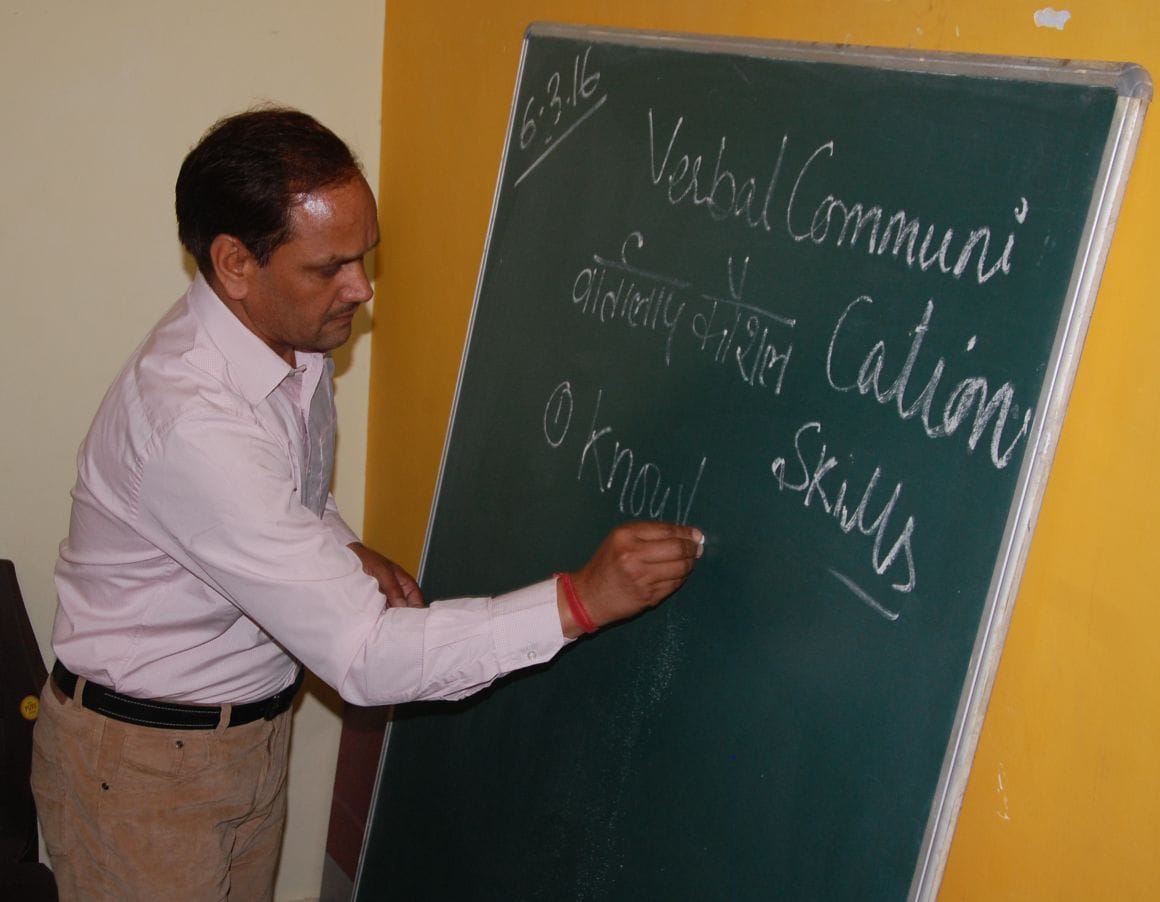 6.3.16
Verbal Communi
Cation
Skills
वार्तालाप कौशल
① Knowl